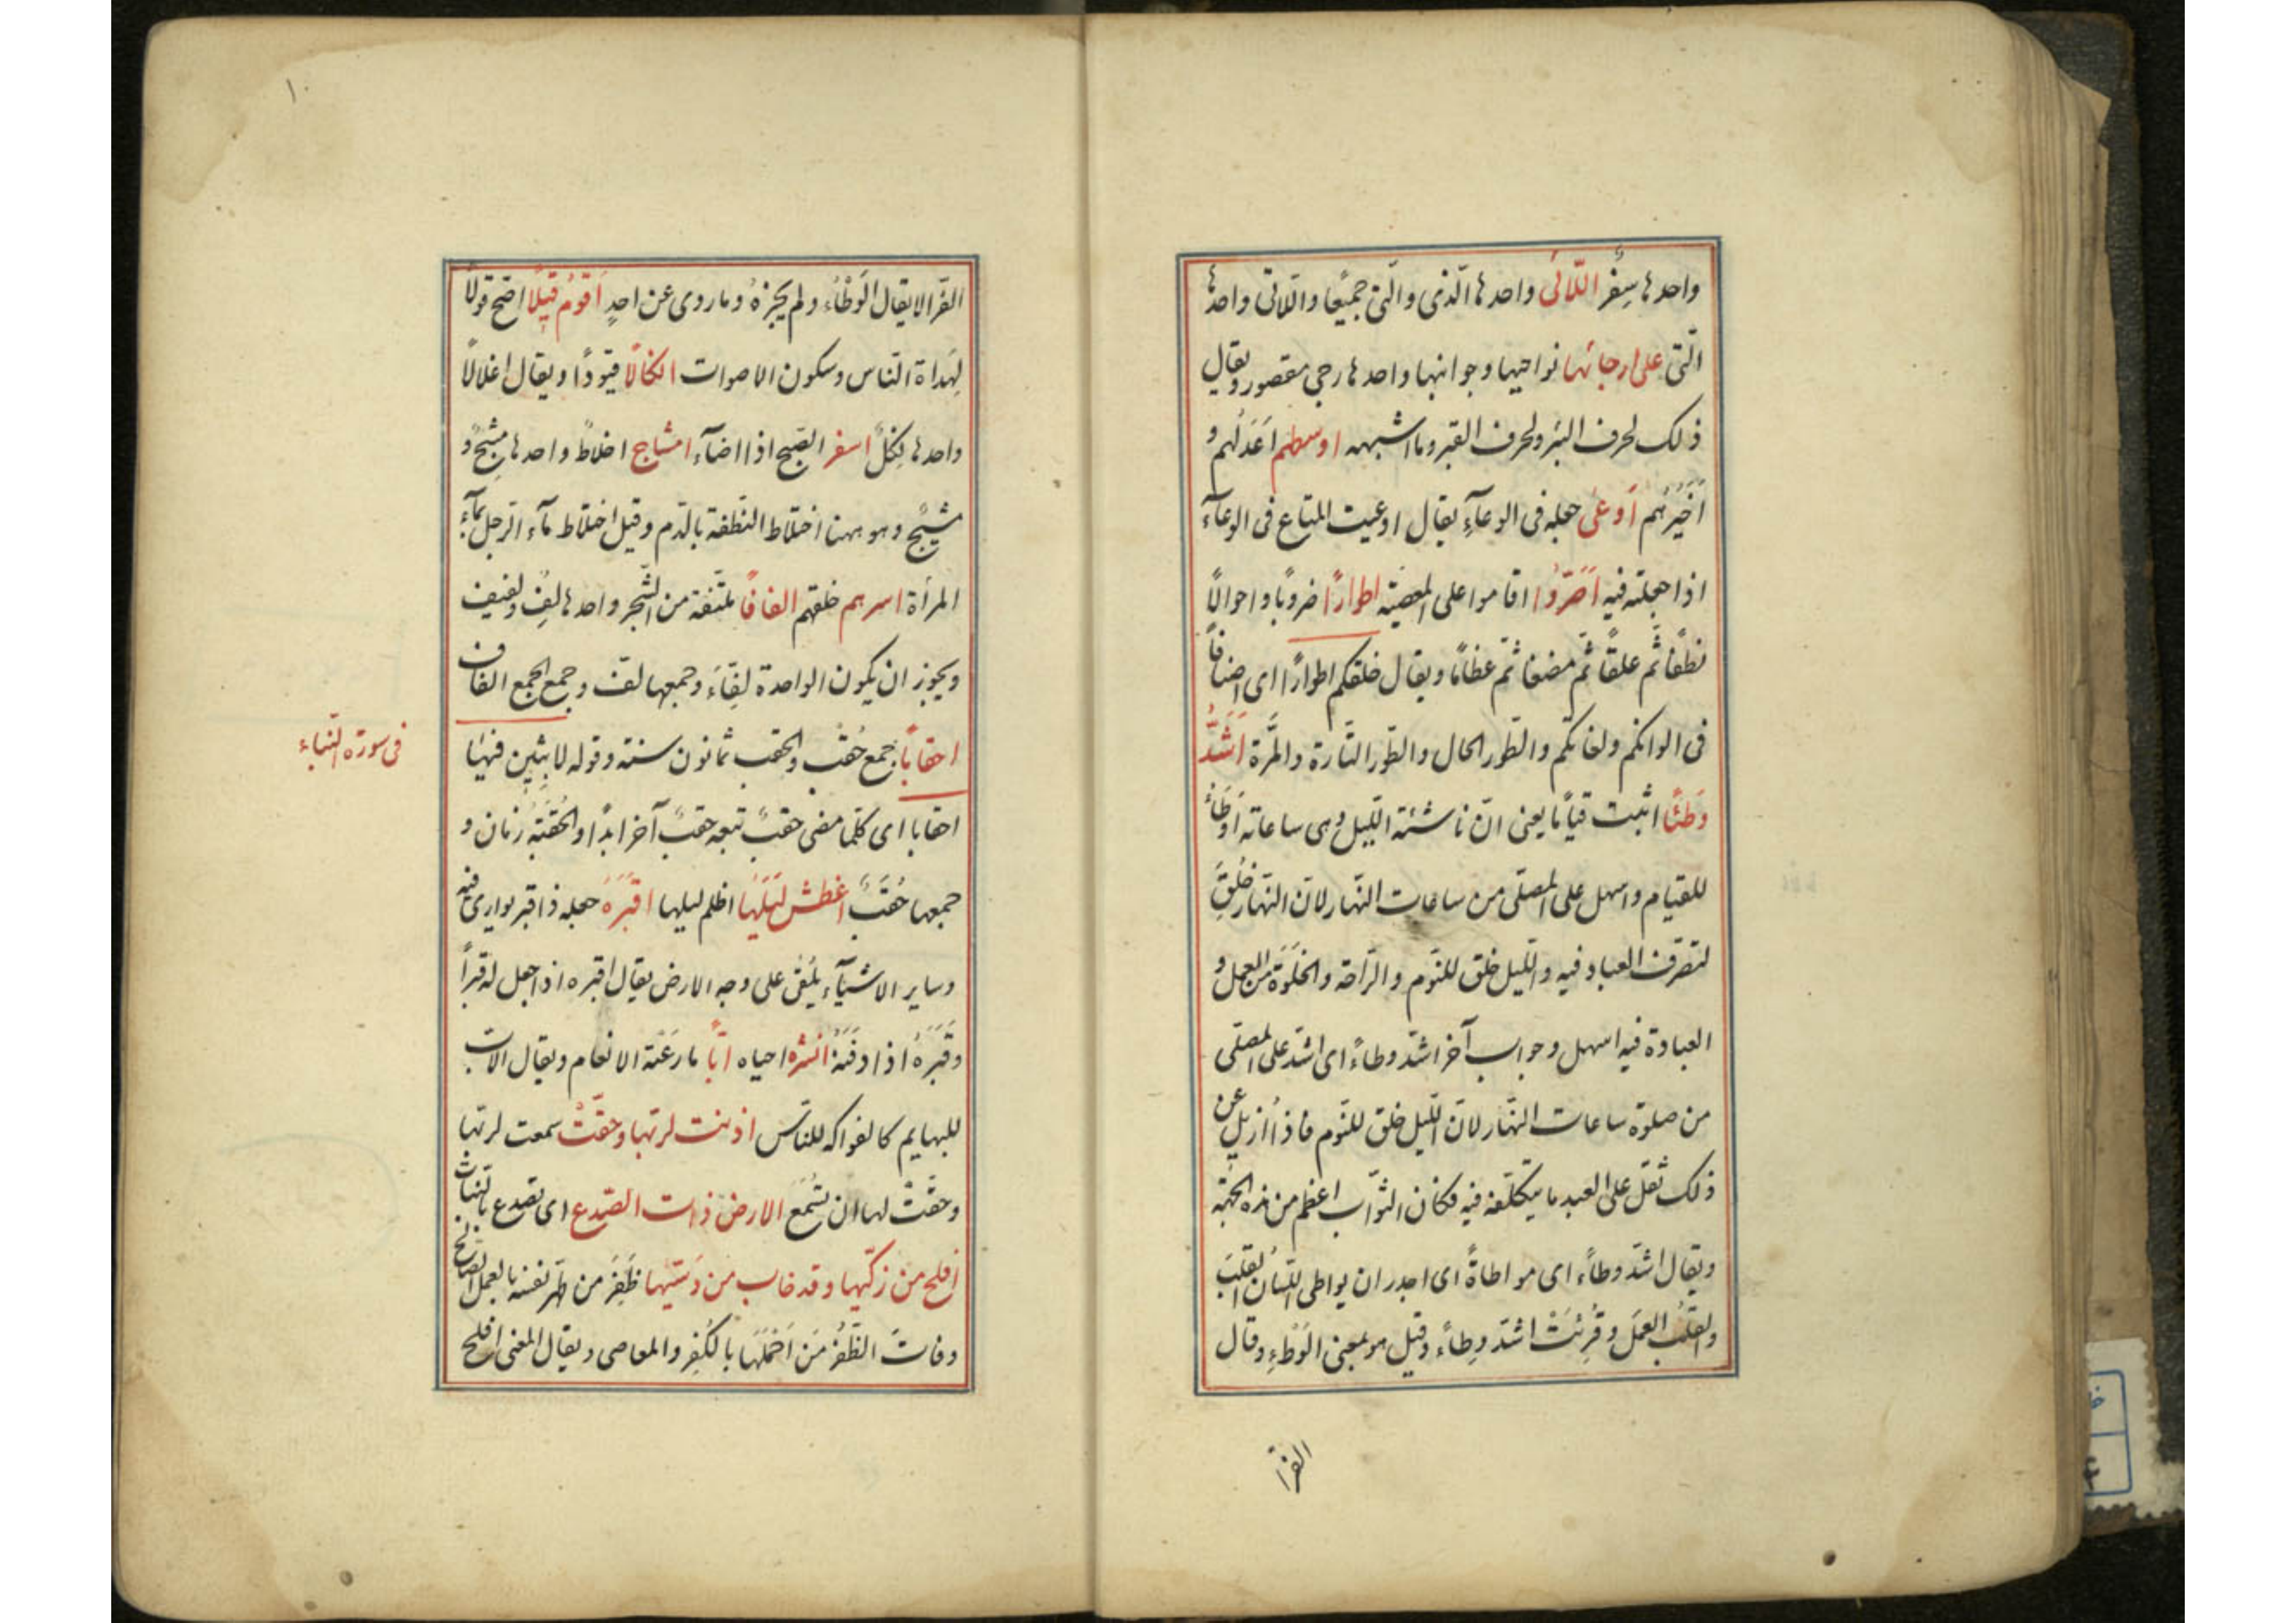 واحدها سِفْر اللّائى واحدها الّذى والّتى جميعًا واللّاتى واحدها
الّتى على ارجائها نواحيها وجوانبها واحدها رجى مقصور ويقال
ذلك لحرف البئر ولحرف القبر وما اشبهه اوسطهم اَعْدَلُهم و
اَخْيَرُهم اَوْعى جعله فى الوعآءِ يقال اوعيت المتاع فى الوعآء
اذا جعلته فيه اَصَرّوا اقاموا على المعصية اطوارًا ضروبًا واحوالًا
نطفًا ثمّ علقًا ثمّ مضغا ثمّ عظامًا ويقال خلقكم اطوارًا اى اصنافًا
فى الوانكم ولغاتكم والطّور الحال والطّور التّارة والمرّة اَشَدُّ
وَطئًا اثبت قيامًا يعنى انّ ناشئة اللّيل وهى ساعاته اَوْطَاءُ
للقيام واسهل على المصلّى من ساعات النّهار لانّ النّهار خُلِقَ
لتصرّف العباد فيه واللّيل خلق للنّوم والرّاحة والخَلْوَة من العمل و
العبادة فيه اسهل وجواب آخر اشدّ وطاءً اى اشدّ على المصلّى
من صلوة ساعات النّهار لانّ اللّيل خلق للنّوم فاذا اُزيل عن
ذلك ثقل على العبد ما يتكلّفه فيه فكان الثّواب اعظم من هذه الجهة
ويقال اشدّ وطاءً اى مواطاةً اى اجدر ان يواطى اللّسانُ القلبَ
والقلبُ العمَل وقُرِئتْ اشدّ وِطاءً وقيل هو بمعنى الوَطْءِ وقال
الفرّا
١٠
الفرّا لا يقال الوَطْاءُ ولم يجِزهُ وما روى عن احدٍ اَقْوَمُ قِيلًا اصحّ قولًا
لِهَداة النّاس وسكون الاصوات انكالًا قيودًا ويقال اغلالًا
واحدها نِكْلٌ اسفر الصّبح اذا اضآء امشاج اخلاطٌ واحدها مَشْجٌ و
مشيْجٌ وهو ههنا اختلاط النّطفة بالدّم وقيل اختلاط مآء الرّجل بمآء
المرأة اسرهم خلقهم الفافًا ملتفّة من الشّجر واحدها لِفٌ ولفيف
ويجوز ان يكون الواحدة لَفّاءَ وجمعها لُفّ وجمع الجمع الفاف
احقابًا جمع حُقْبٌ والحقب ثمانون سنة وقوله لابِثِين فيها
احقابا اى كلّما مضى حقبٌ تبعه حقبٌ آخر ابدًا والحُقْبَةُ زمان و
جمعها حُقَبٌ اغطش لَيْلَهَا اظلم ليلها اقْبَرَهُ جعله ذا قبر يوارى فيه
وساير الاشيآء يُلْقى على وجه الارض يقال اقبره اذا جعل له قبراً
وقَبَرَهُ اذا دفنَهُ انشره احياه ابًّا ما رعَتْهُ الانعام ويقال الابّ
للبهايم كالفواكه للنّاس اذنت لربّها وحقّتْ سمعت لربّها
وحقّتْ لها ان تسْمَع الارض ذات الصّدع اى تصدع بالنّبات
افلح من زكّيها وقد خاب من دَسّيها ظَفِرَ من طهّر نفسه بالعمل الصّالح
وفات الظَّفرُ مَن اَخْمَلَهَا بالكُفر والمعاصى ويقال المعنى افلح
فى سورة النّباء